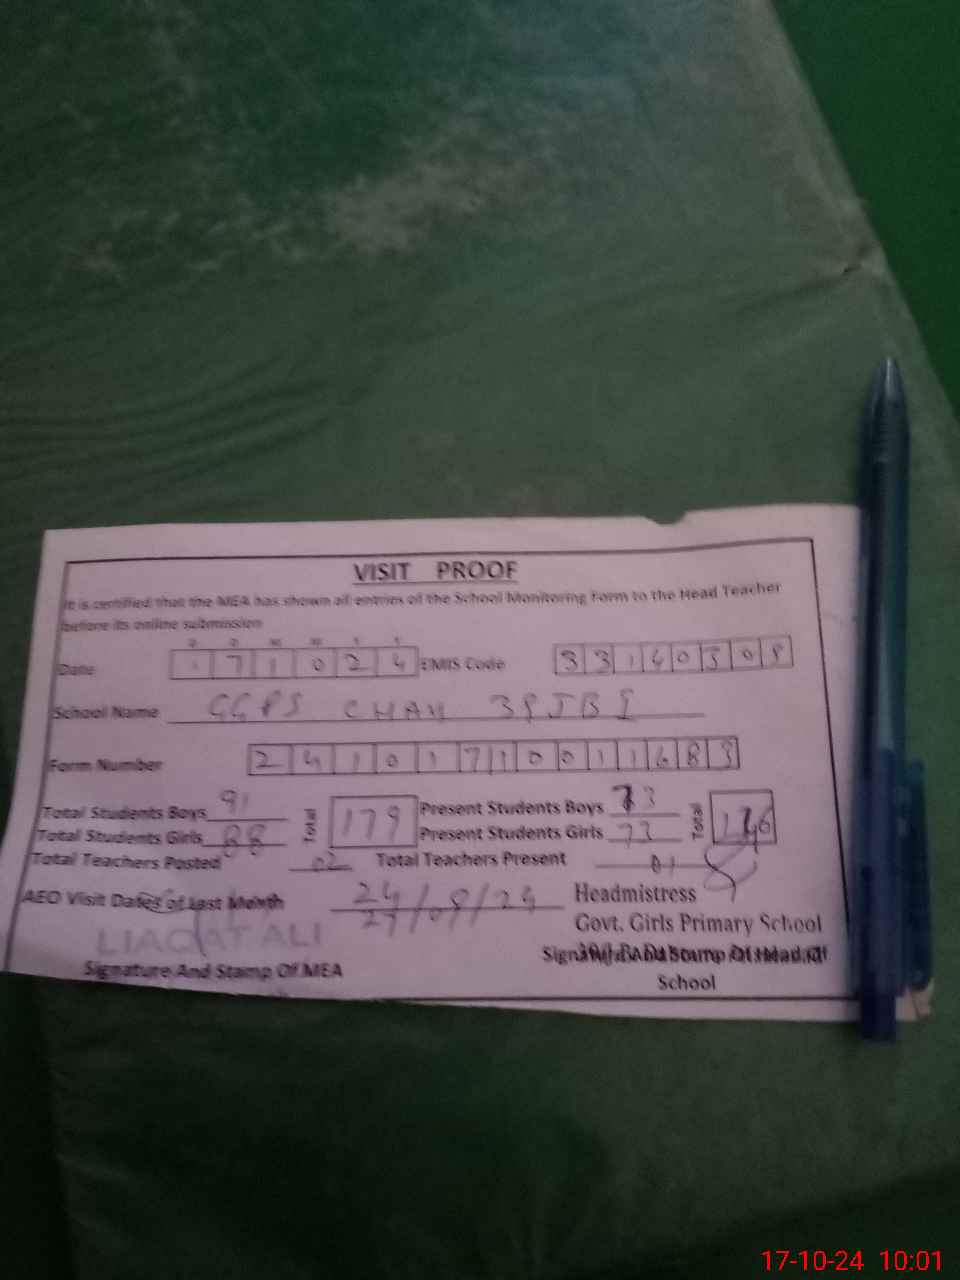 VISIT PROOF
It is certified that the MEA has shown all entries of the School Monitoring Form to the Head Teacher
before its online submission
D D M M Y Y
Date 1 7 1 0 2 4 EMIS Code 3 3 1 4 0 3 0 8
School Name GGPS CHAK
Form Number 2 4 1 0 1 7 1 0 0 1 1 6 8 3
Total Students Boys 91 Total 179 Present Students Boys 73 Total 146
Total Students Girls 88 Present Students Girls 73
Total Teachers Posted 02 Total Teachers Present 01
AEO Visit Dates of Last Month 24/ 27/09/24
Headmistress
Govt. Girls Primary School
LIAQAT ALI
Signature And Stamp Of MEA
Signature And Stamp Of Head Of
School
17-10-24 10:01